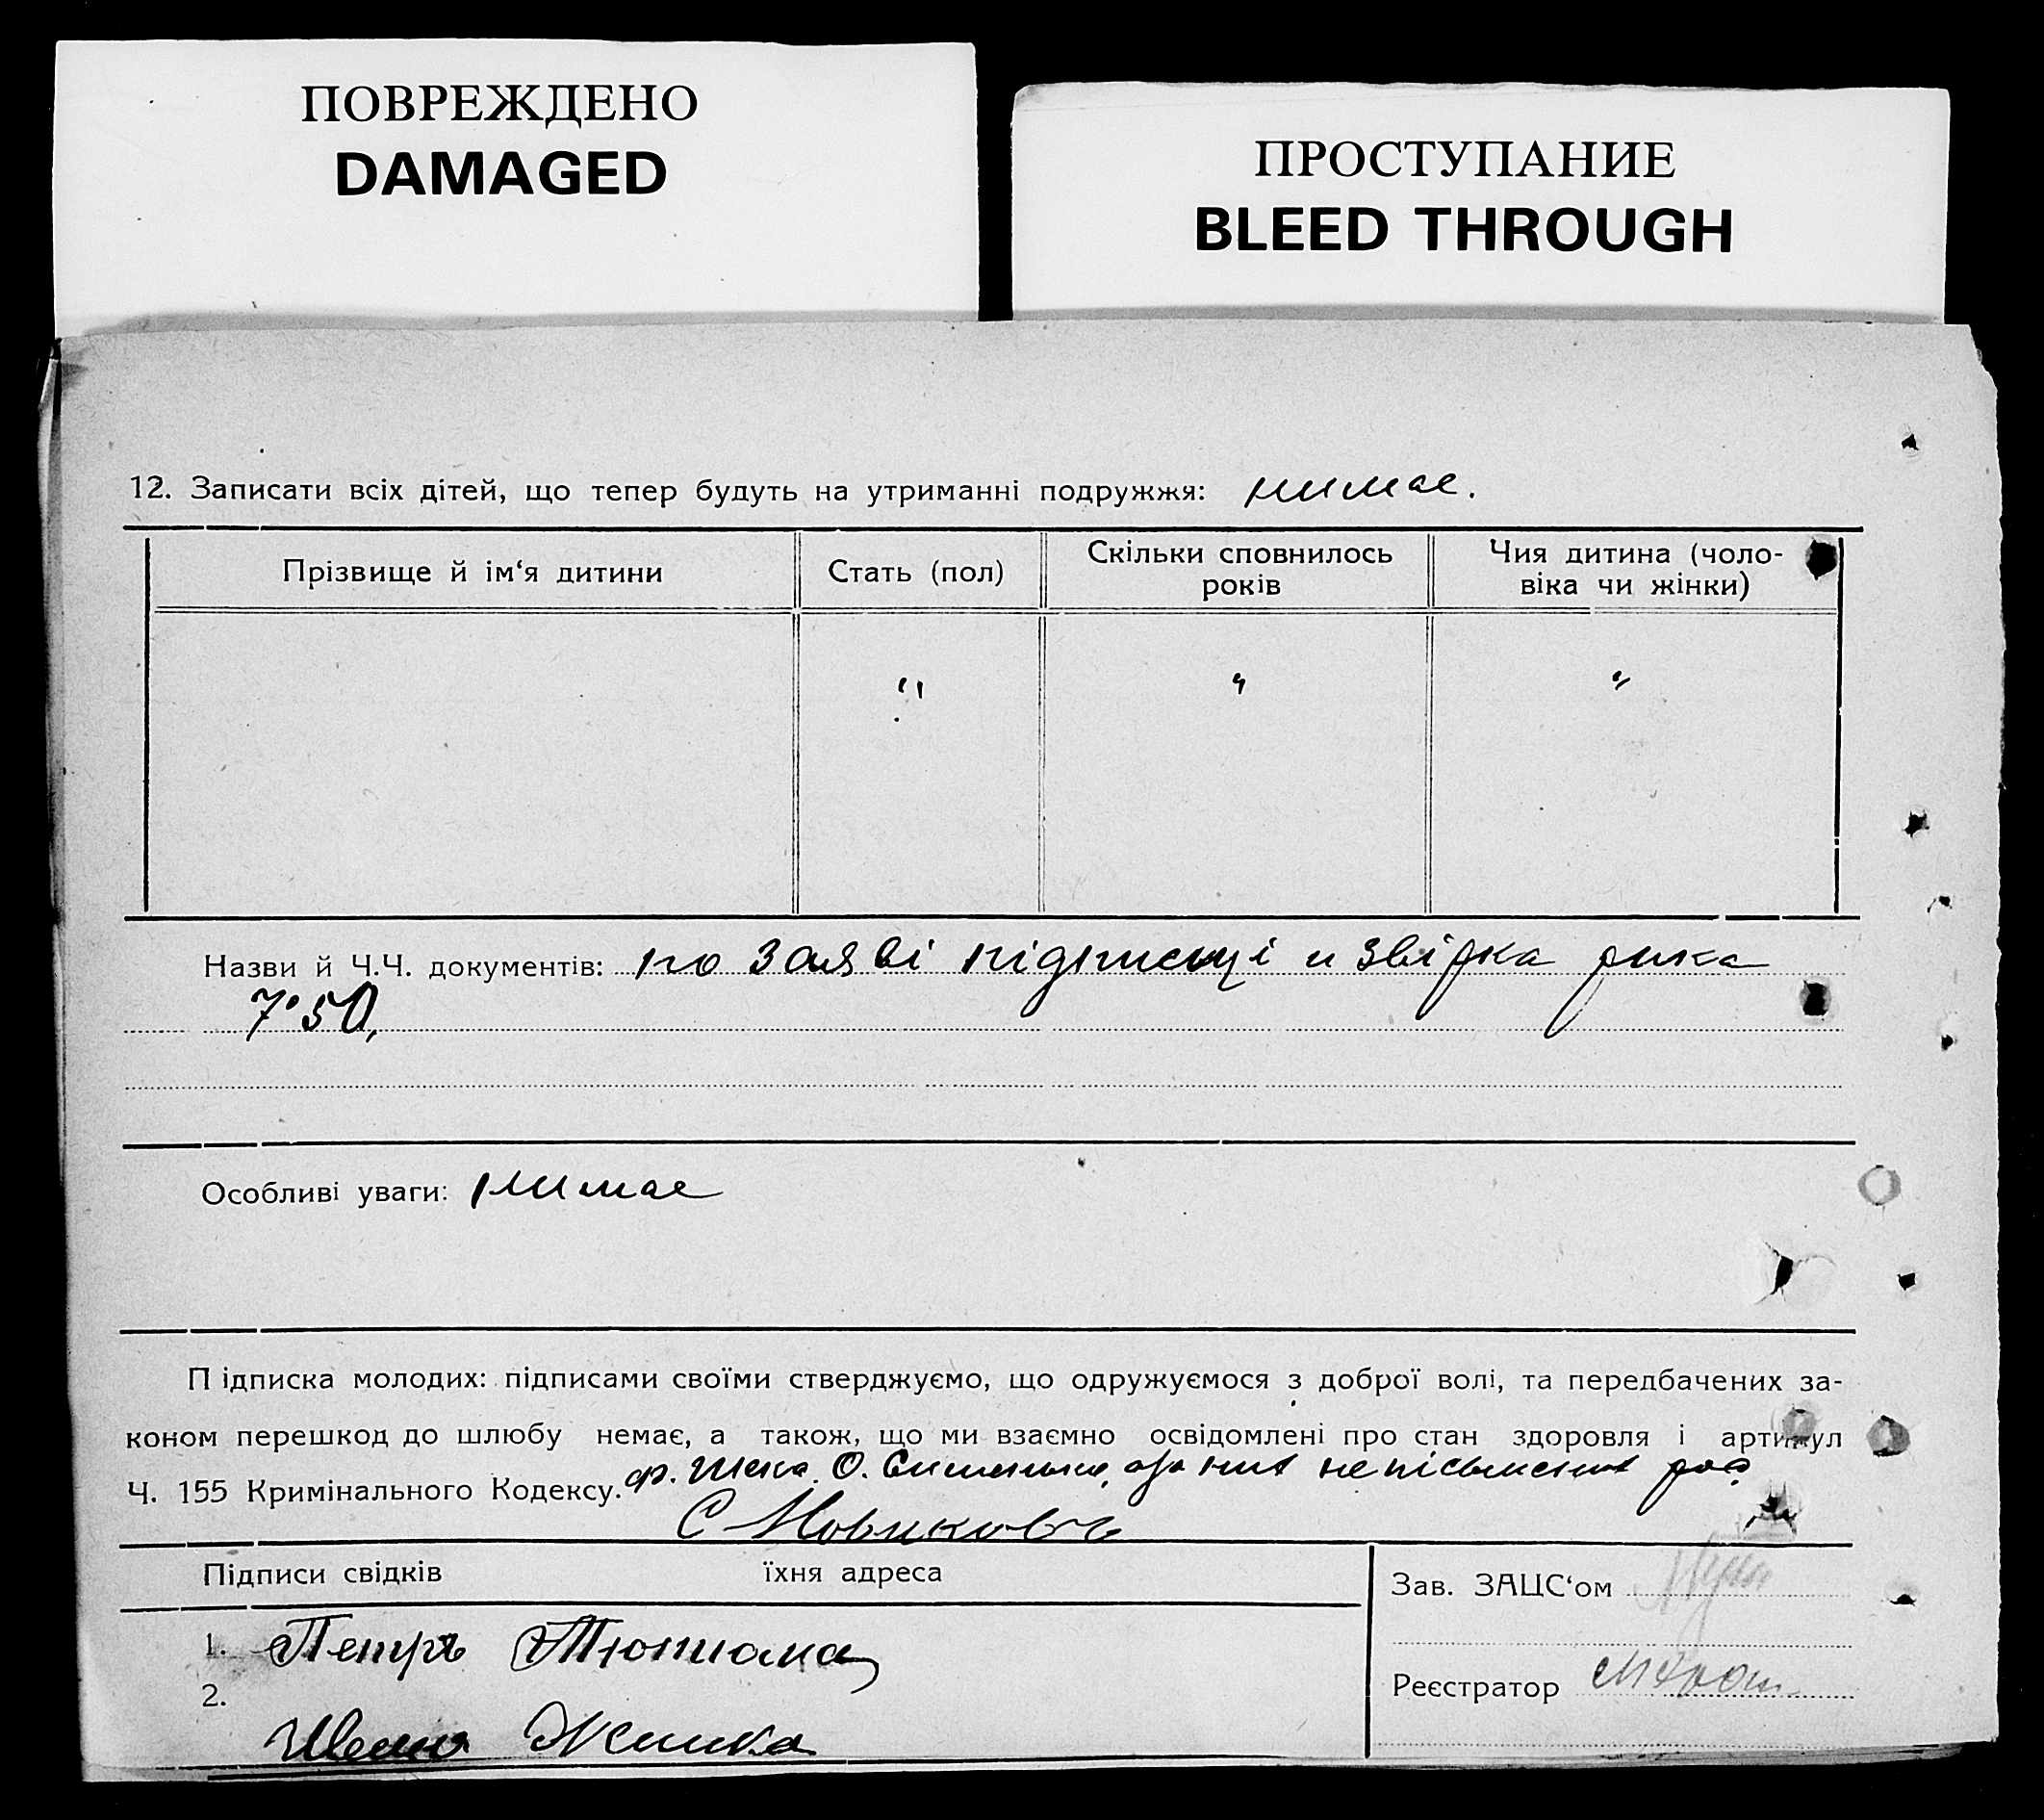 ПОВРЕЖДЕНО
DAMAGED
ПРОСТУПАНИЕ
BLEED THROUGH
12. Записати всіх дітей, що тепер будуть на утриманні подружжя: нимае.
Прізвище й ім‘я дитини
Стать (пол)
Скільки сповнилось
років
Чия дитина (чоло-
віка чи жінки)
" " "
Назви й Ч.Ч. документів: по заяві підписці и звірка
7·50,
Особливі уваги: нимае
Підписка молодих: підписами своїми стверджуємо, що одружуємося з доброї волі, та передбачених за-
коном перешкод до шлюбу немає, а також, що ми взаємно освідомлені про стан здоровля і артикул
Ч. 155 Кримінального Кодексу.
С Новиковъ
Підписи свідків їхня адреса
Зав. ЗАЦС‘ом
1. Петръ
2.
Реєстратор